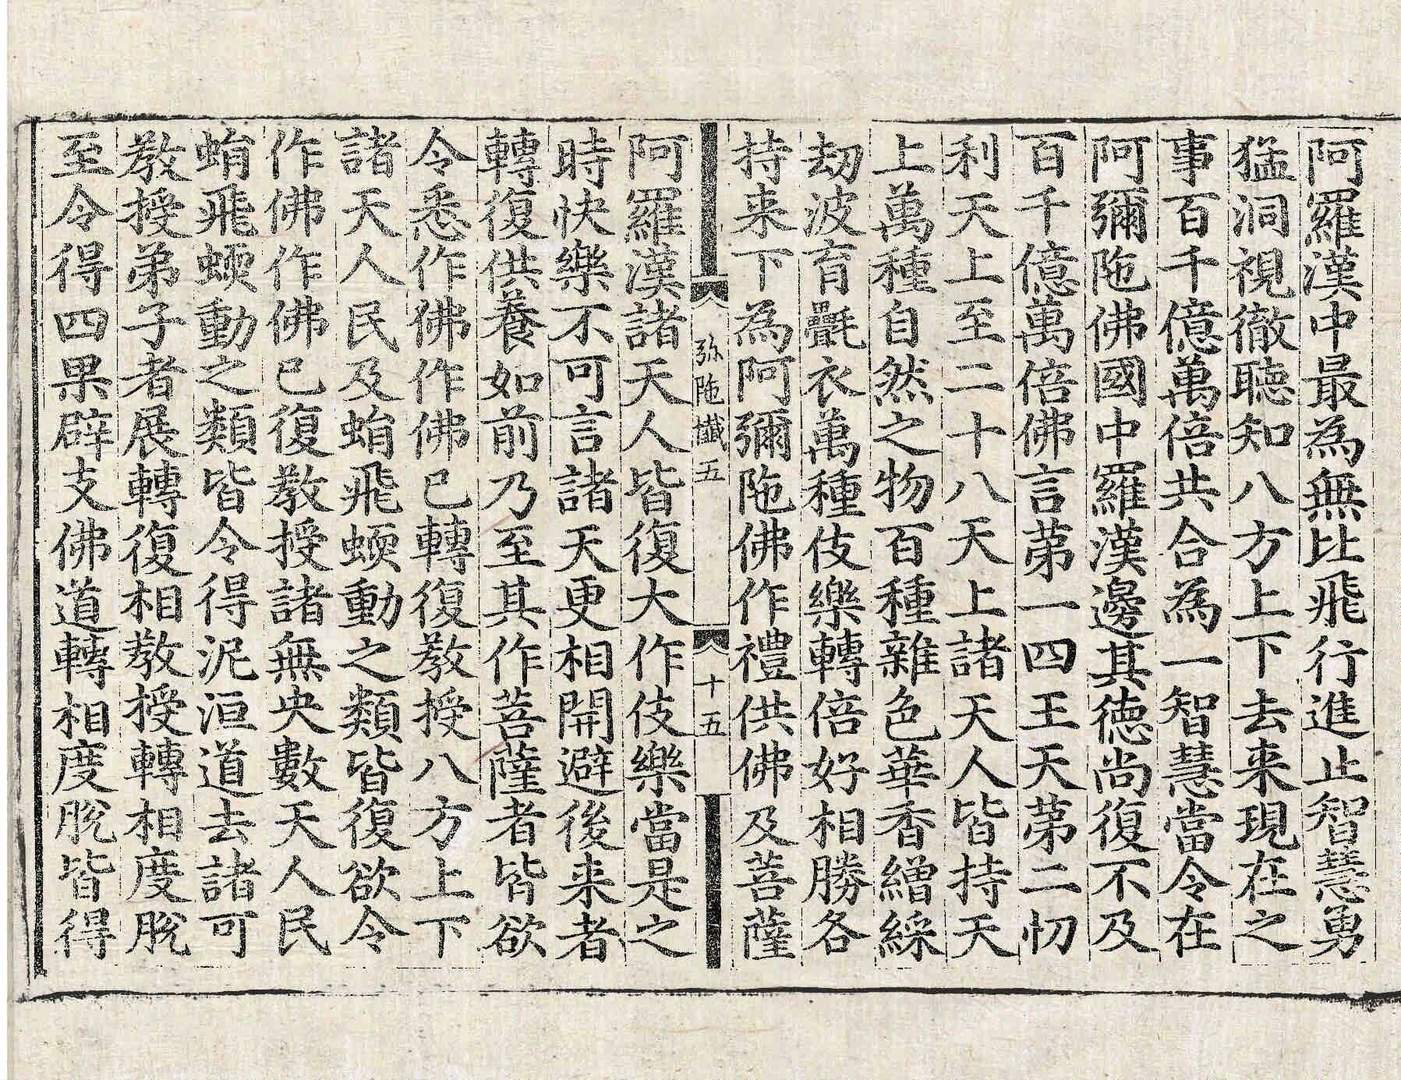 阿羅漢中最為無比飛行進止智慧勇
猛洞視徹聽知八方上下去来現在之
事百千億萬倍共合為一智慧當令在
阿彌陁佛國中羅漢邊其德尚復不及
百千億萬倍佛言苐一四王天苐二忉
利天上至二十八天上諸天人皆持天
上萬種自然之物百種雜色華香繒綵
劫波育㲲衣萬種伎樂轉倍好相勝各
持来下為阿彌陁佛作禮供佛及菩薩
弥陁懺五
十五
阿羅漢諸天人皆復大作伎樂當是之
時快樂不可言諸天更相開避後来者
轉復供養如前乃至其作菩薩者皆欲
令悉作佛作佛已轉復教授八方上下
諸天人民及蜎飛蝡動之類皆復欲令
作佛作佛已復教授諸無央數天人民
蜎飛蝡動之類皆令得泥洹道去諸可
教授弟子者展轉復相教授轉相度脫
至令得四果辟支佛道轉相度脫皆得